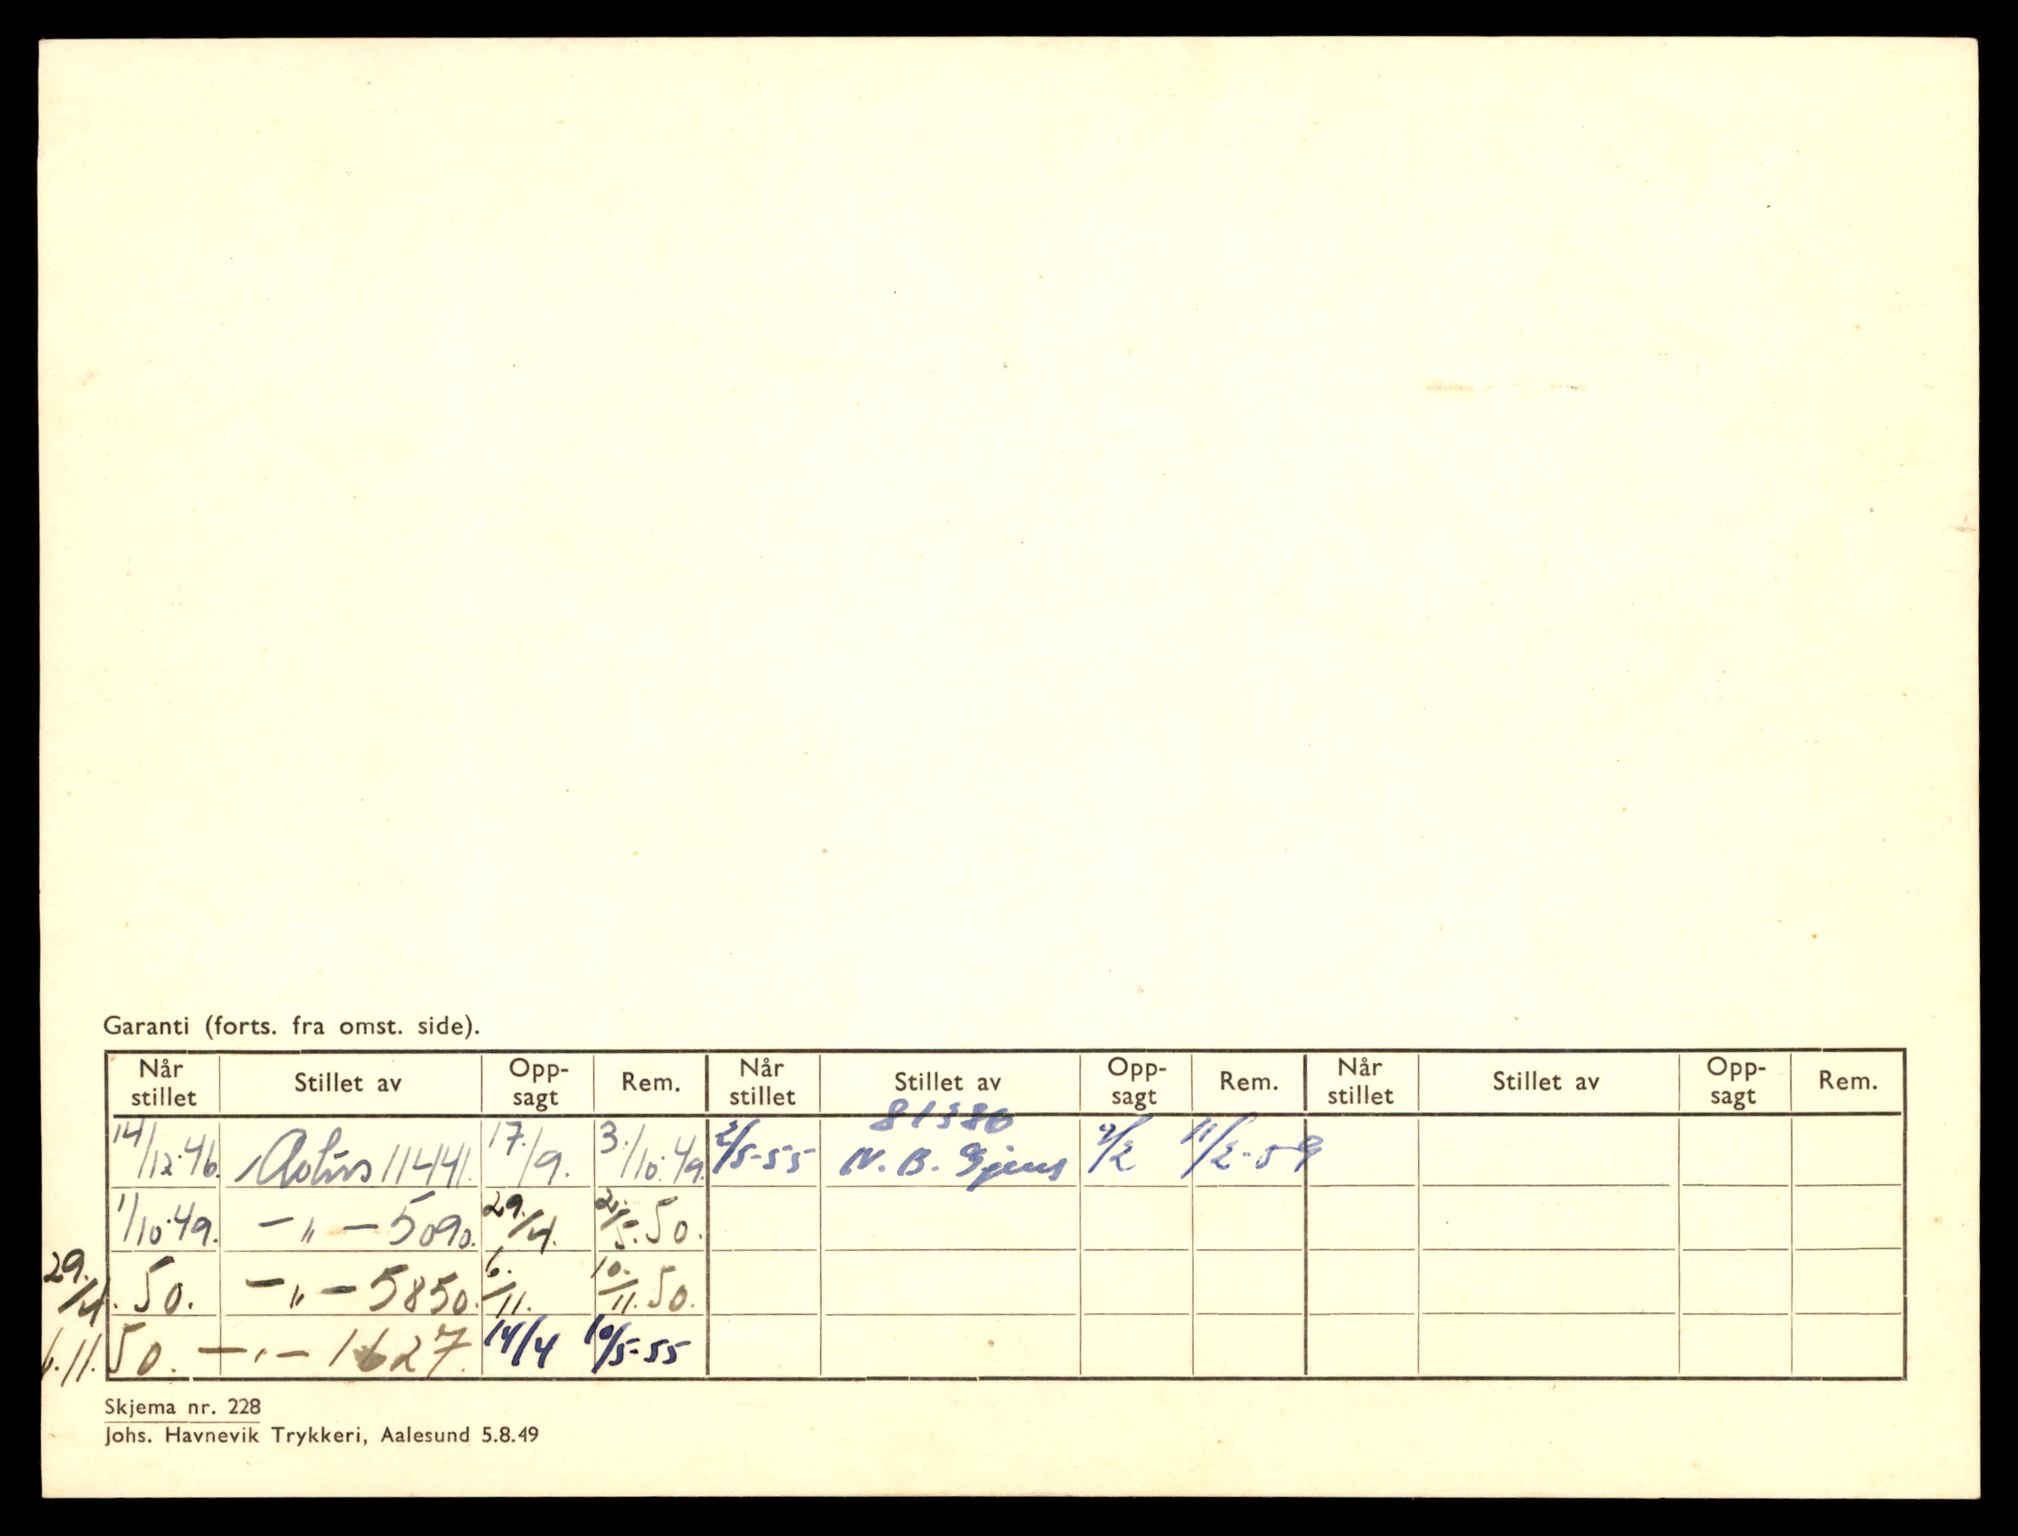 Garanti (forts. fra omst. side).
Når stillet Stillet av Opp-sagt Rem. Når stillet Stillet av Opp-sagt Rem. Når stillet Stillet av Opp-sagt Rem.
81380
14/12.46. 11441. 17./9. 3./10.49. 2/5-55 N. B. Gjens 9/2 11/2-59
1/10.49. -"- 5090. 29./4. 2./5.50.
29./4.50. -"- 5850. 6./11. 10./11.50.
6.11.50. -"- 1627. 14/4 10/5-55
Skjema nr. 228
Johs. Havnevik Trykkeri, Aalesund 5.8.49